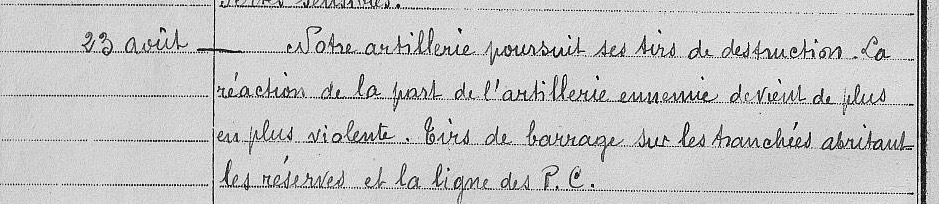 pertes sensibles.
23 août — Notre artillerie poursuit ses tirs de destruction. La
réaction de la part de l'artillerie ennemie devient de plus
en plus violente. Tirs de barrage sur les tranchées abritant
les réserves et la ligne des P.C.